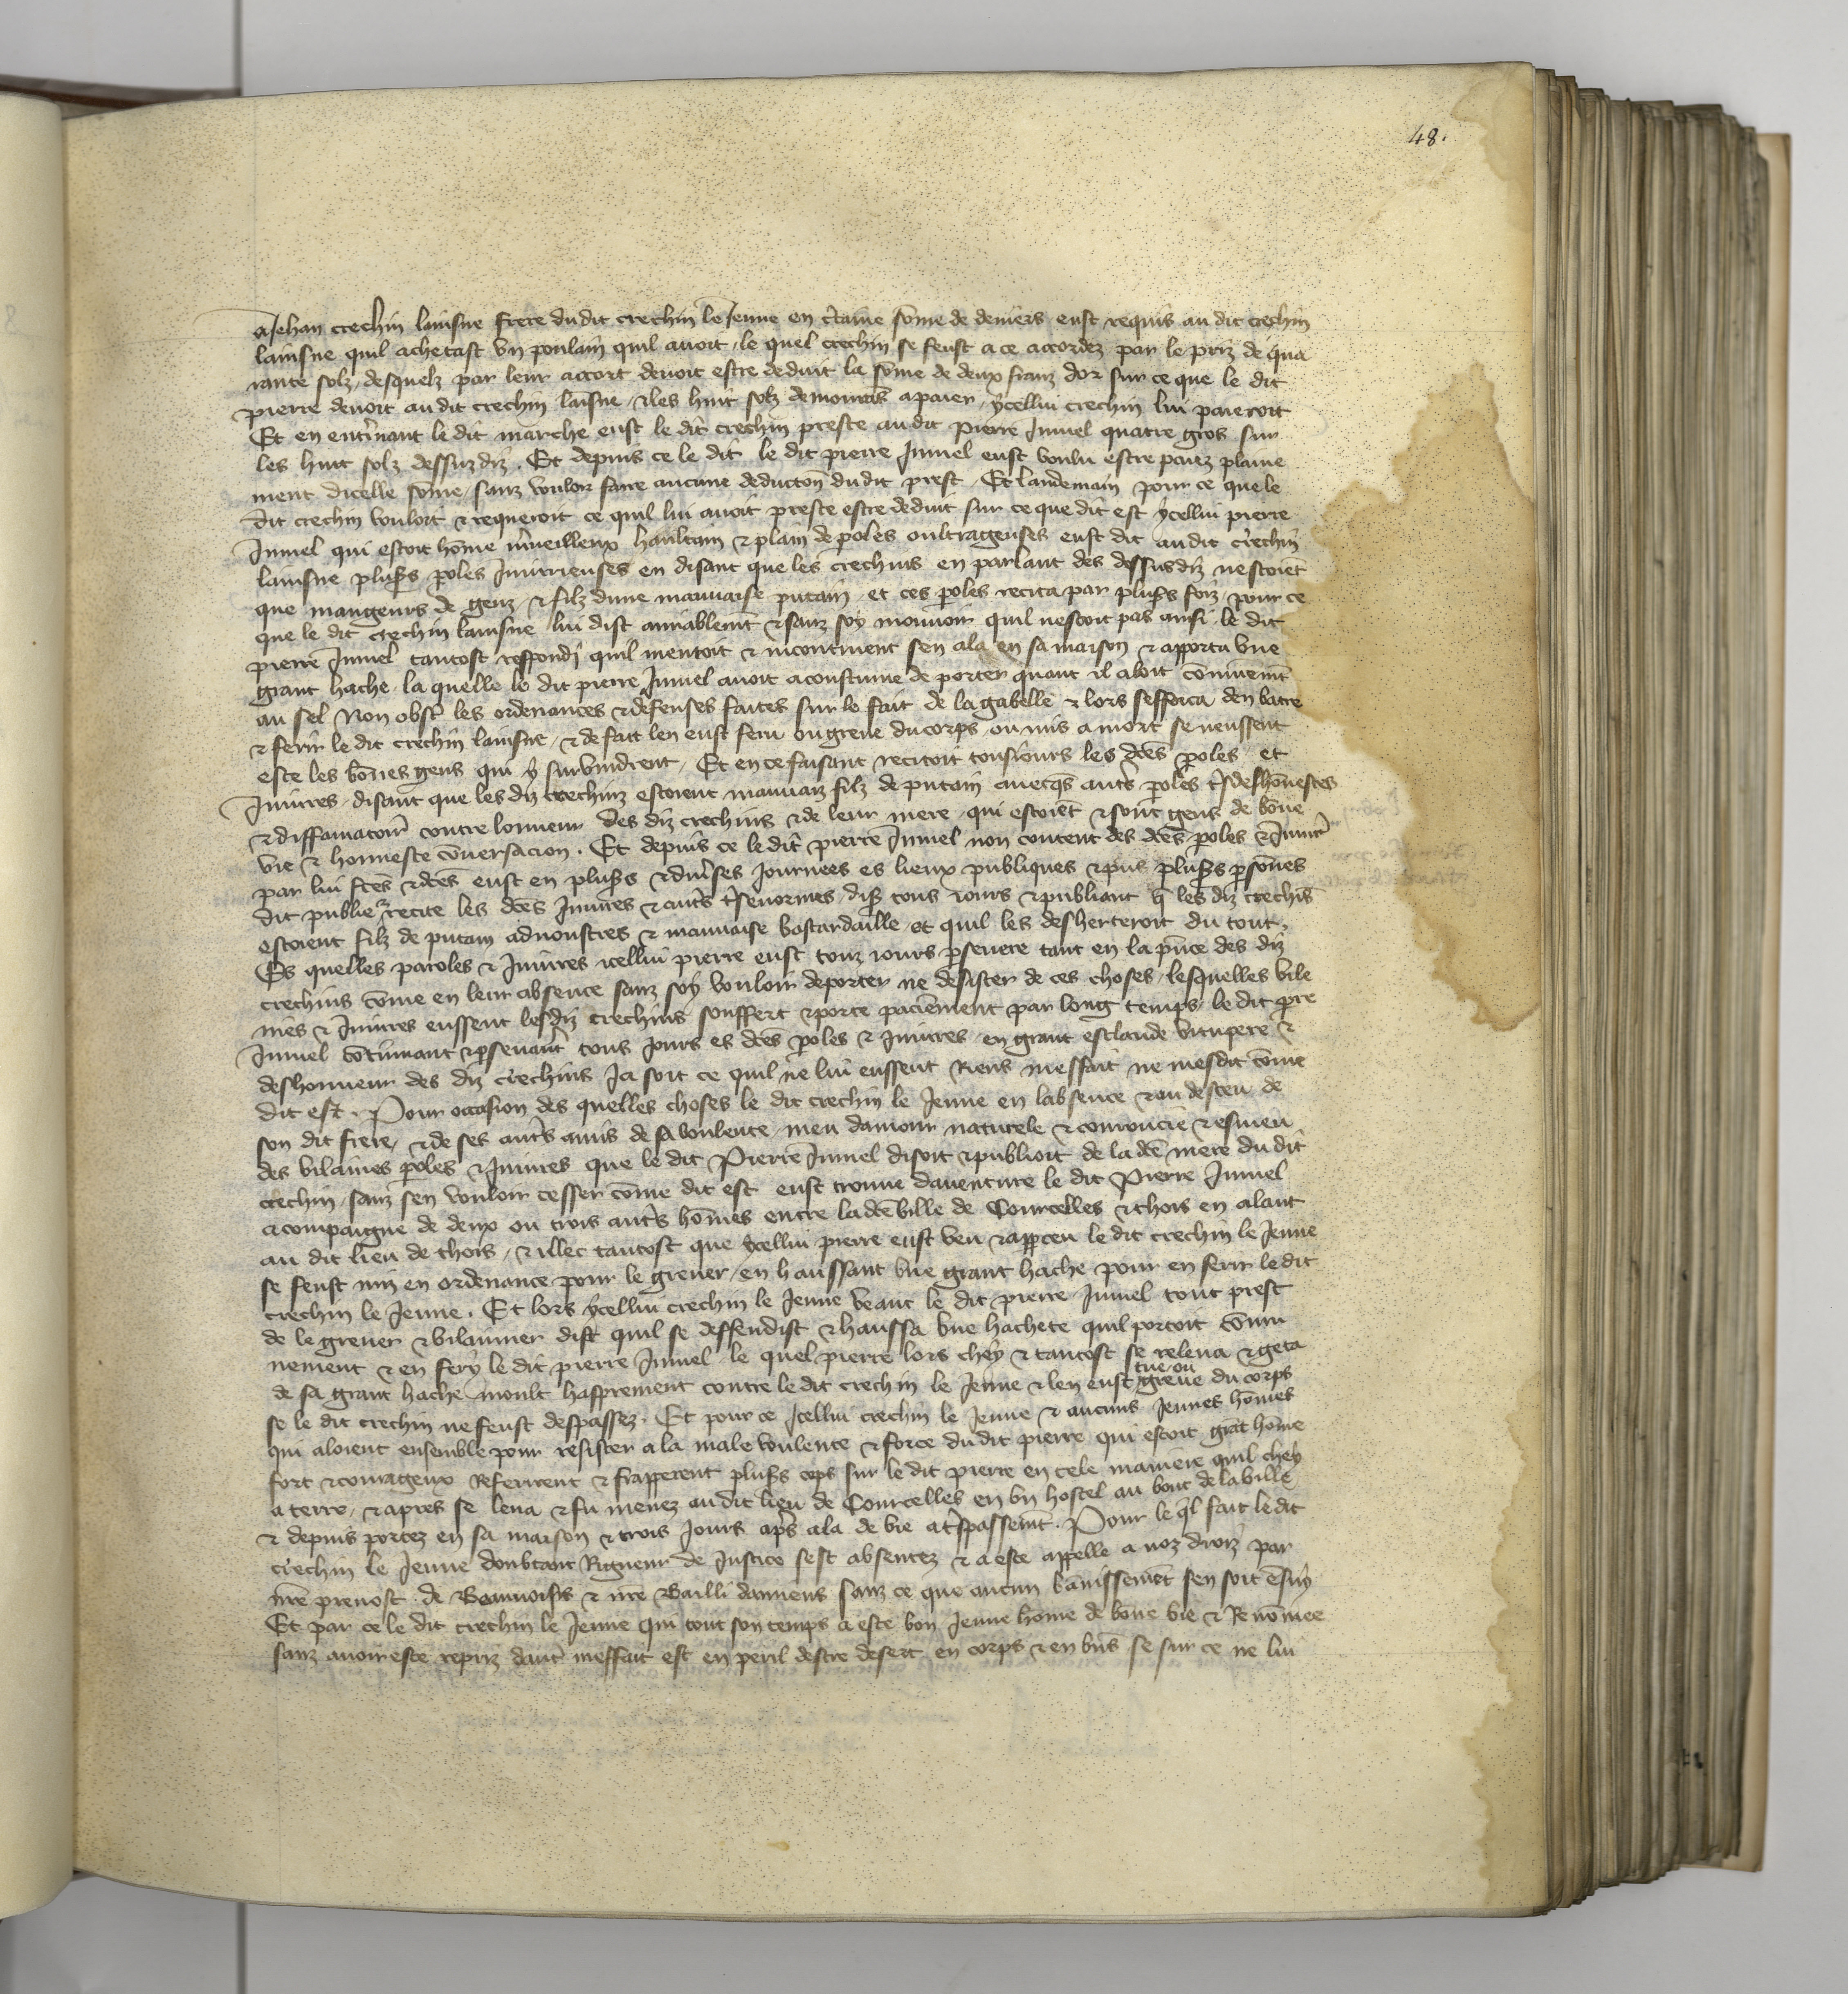 48.
a Jehan crechin lainsne frere du dit crechin le Jeune en c̾taine sōme de deniers eust requis au dit crechin
lainsne quil achetast vn poulain quil auoit le quel crechin se feust a ce accordez par le priz de qua
rante solz desquelz par leur accort deuoit estre deduit la sōme de deux franz dor sur ce que le dit
pierre deuoit au dit crechin laisne & les huit solz demourās a paier ycellui crechin lui paieroit
Et en ent̾inant le dit marche eust le dit crechin preste au dit pierre Juuel quatre gros sur
les huit solz dessuz diz. Et depuis ce le dit le dit pierre Juuel eust voulu estre paiez plaine
ment dicelle sōme sanz vouloir faire aucune deducton̄ du dit prest. Et landemain pour ce que le
dit crechin vouloit & requeroit ce quil lui auoit preste estre deduit sur ce que dit est ycellui pierre
Juuel qui estoit hōme m̾ueilleux haultain & plain de p̄oles oultrageuses eust dit au dit crechin
lainsne plus̾s p̄oles Iniurieuses en disant que les crechins en parlant des dessusdiz nestoiēt
que mangeurs de genz & filz dune mauuaise putain et ces p̄oles recita par plus̾s foiz pour ce
que le dit crechin lainsne lui dist amiablemt̄ & sanz soy mouuoir quil nestoit pas ansi le dit
pierre Juuel tantost respondi quil mentoit & incontinent sen ala en sa maison & apporta vne
grant hache la quelle le dit pierre Juuel auoit acoustume de porter quant il aloit cōmunemt̄
au sel Non obst̄ les ordenances & defenses faites sur le fait de la gabelle & lors sefforca den batre
& ferir le dit crechin lainsne & de fait len eust feru ou greue du corps ou mis a mort se neussent
este les bōnes gens qui y suruindrent. Et en ce faisant recitoit tousiours les dc̄es p̄oles et
Iniures disant que les diz crechinz estoient mauuaiz filz de putain auecq̄s aut̾s p̄oles t̾sdeshōnestes
& diffamatoir̾ contre lonneur des diz crechins & de leur mere qui estoiēt & sont gens de bōne
vie & honneste cōuersacion. Et depuis ce le dit pierre Juuel non content des dc̄es p̄oles & Iniur̾
par lui fc̄es & dc̄es eust en plus̾s & diu̾ses journees es lieux publiques & p̄ns plus̾s p̄sōnes
dit publie & recite les dc̄es Iniures & aut̾s t̾senormes dis̄ tous iours & publiant q̄ les diz crechīs
estoient filz de putain aduoustres & mauuaise bastardaille et quil les desherteroit du tout.
Es quelles paroles & Iniures icellui pierre eust touz iours p̄seuere tant en la p̄nce des diz
crechins cōme en leur absence sanz soy vouloir deporter ne desister de ces choses lesquelles vile
nies & Iniures eussent les diz crechins souffert & porte paciēment par long temps le dit p̄re
Juuel cōtinuant & p̄seuāt tous jours es dc̄es p̄oles & iniures en grant esclande vitupere &
deshonneur des diz crechins Ja soit ce quil ne lui eussent Riens meffait ne mesdit cōme
dit est. Pour occasion des quelles choses le dit crechin le Jeune en labsence & au desceu de
son dit frere & de ses aut̾s amis de sa voulente meu damour naturele & courroucie & esmeu
des vilaines p̄oles & Iniures que le dit Pierre Juuel disoit & publioit de la dc̄e mere du dit
crechin sanz sen vouloir cesser cōme dit est eust trouue dauenture le dit Pierre Juuel
acompaigne de deux ou trois aut̾s hōmes entre la dc̄e ville de Courcelles & thois en alant
au dit lieu de thois & illec tantost que ycellui pierre eust veu & app̄ceu le dit crechin le Jeune
se feust miz en ordenance pour le greuer en haussant vne grant hache pour en ferir le dit
crechin le Jeune. Et lors ycellui crechin le Jeune veant le dit pierre Juuel tout prest
de le greuer & vilainner dist quil se deffendist & haussa vne hachete quil portoit cōmu
nement & en fery le dit pierre Juuel le quel pierre lors chey & tantost se releua & geta
de sa grant hache moult hasprement contre le dit crechin le Jeune & len eust tue ou greue du corps
se le dit crechin ne feust despassez. Et pour ce Icellui crechin le Jeune & aucuns Jeunes hōmes
qui aloient ensemble pour resister a la male voulente & force du dit pierre qui estoit grāt hōme
fort & courageux Referirent & frapperent plus̾s cops sur le dit pierre en tele maniere quil chey
a terre & apres se leua & fu menez au dit lieu de Courcelles en vn hostel au bout de la ville
& depuis portez en sa maison & trois Jours ap̄s ala de vie a t̾spassemt̄. Pour le q̄l fait le dit
crechin le Jeune doubtant Rigueur de Iustice sest absentez & a este appelle a noz droiz par
nr̄e preuost de Beauuoisis & nr̄e Bailli damiens sanz ce que aucun bānissemēt sen soit ēsuy
Et par ce le dit crechin le Jeune qui tout son temps a este bon Jeune hōme de bōne vie & Renōmee
sanz auoir este repriz daut̾ meffait est en peril destre desert en corps & en bn̄s se sur ce ne lui